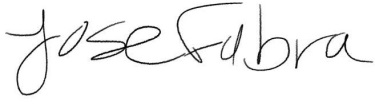 Jose Fabra